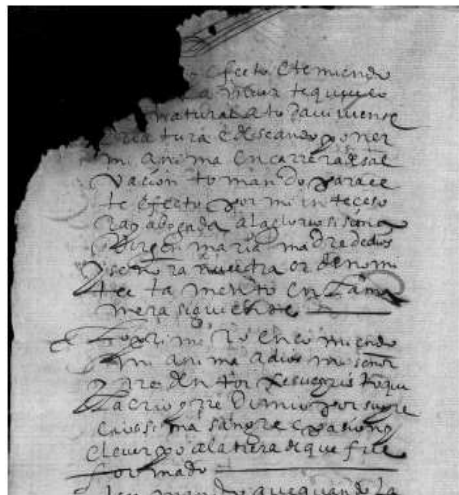 efecto e temiendo
la muerte que es
natural a toda viviente
creatura e deseando poner
mi anima en carrera de sal
vacion tomando para es
te efecto por mi interceso
ra y abogada a la gloriosisima
Virgen maria madre de dios
y señora nuestra ordeno mi
testamento en la ma
nera siguiente
Lo primero encomiendo
mi anima a dios mi señor
y redentor xesucristo que
la crio y redimio por su pre
ciosisima sangre e pasion y
el cuerpo a la tierra de que fue
formado
Iten mando que quando la